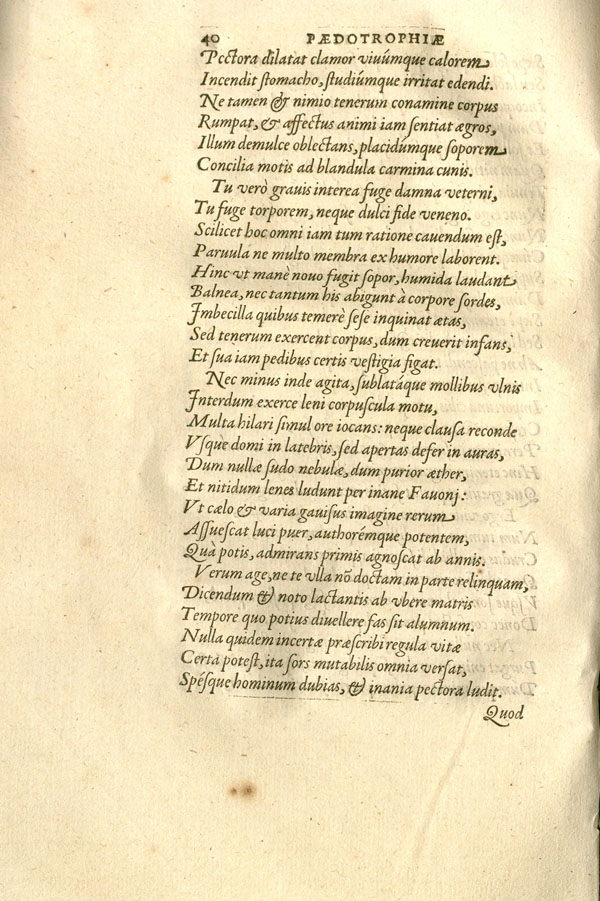 40 PÆDOTROPHIÆ
Pectora dilatat clamor viuúmque calorem
Incendit ſtomacho, ſtudiúmque irritat edendi.
Ne tamen & nimio tenerum conamine corpus
Rumpat, & affectus animi iam ſentiat ægros,
Illum demulce oblectans, placidúmque ſoporem
Concilia motis ad blandula carmina cunis.
Tu verò grauis interea fuge damna veterni,
Tu fuge torporem, neque dulci fide veneno.
Scilicet hoc omni iam tum ratione cauendum eſt,
Paruula ne multo membra ex humore laborent.
Hinc vt manè nouo fugit ſopor, humida laudant
Balnea, nec tantum his abigunt à corpore ſordes,
Imbecilla quibus temerè ſeſe inquinat ætas,
Sed tenerum exercent corpus, dum creuerit infans,
Et ſua iam pedibus certis veſtigia figat.
Nec minus inde agita, ſublatáque mollibus vlnis
Interdum exerce leni corpuſcula motu,
Multa hilari ſimul ore iocans: neque clauſa reconde
Vſque domi in latebris, ſed apertas defer in auras,
Dum nullæ ſudo nebulæ, dum purior æther,
Et nitidum lenes ludunt per inane Fauonj:
Vt cælo & varia gauiſus imagine rerum
Aſſueſcat luci puer, authorémque potentem,
Quà potis, admirans primis agnoſcat ab annis.
Verum age, ne te vlla nõ doctam in parte relinquam,
Dicendum & noto lactantis ab vbere matris
Tempore quo potius diuellere fas ſit alumnum.
Nulla quidem incertæ præſcribi regula vitæ
Certa poteſt, ita ſors mutabilis omnia verſat,
Spéſque hominum dubias, & inania pectora ludit.
Quod